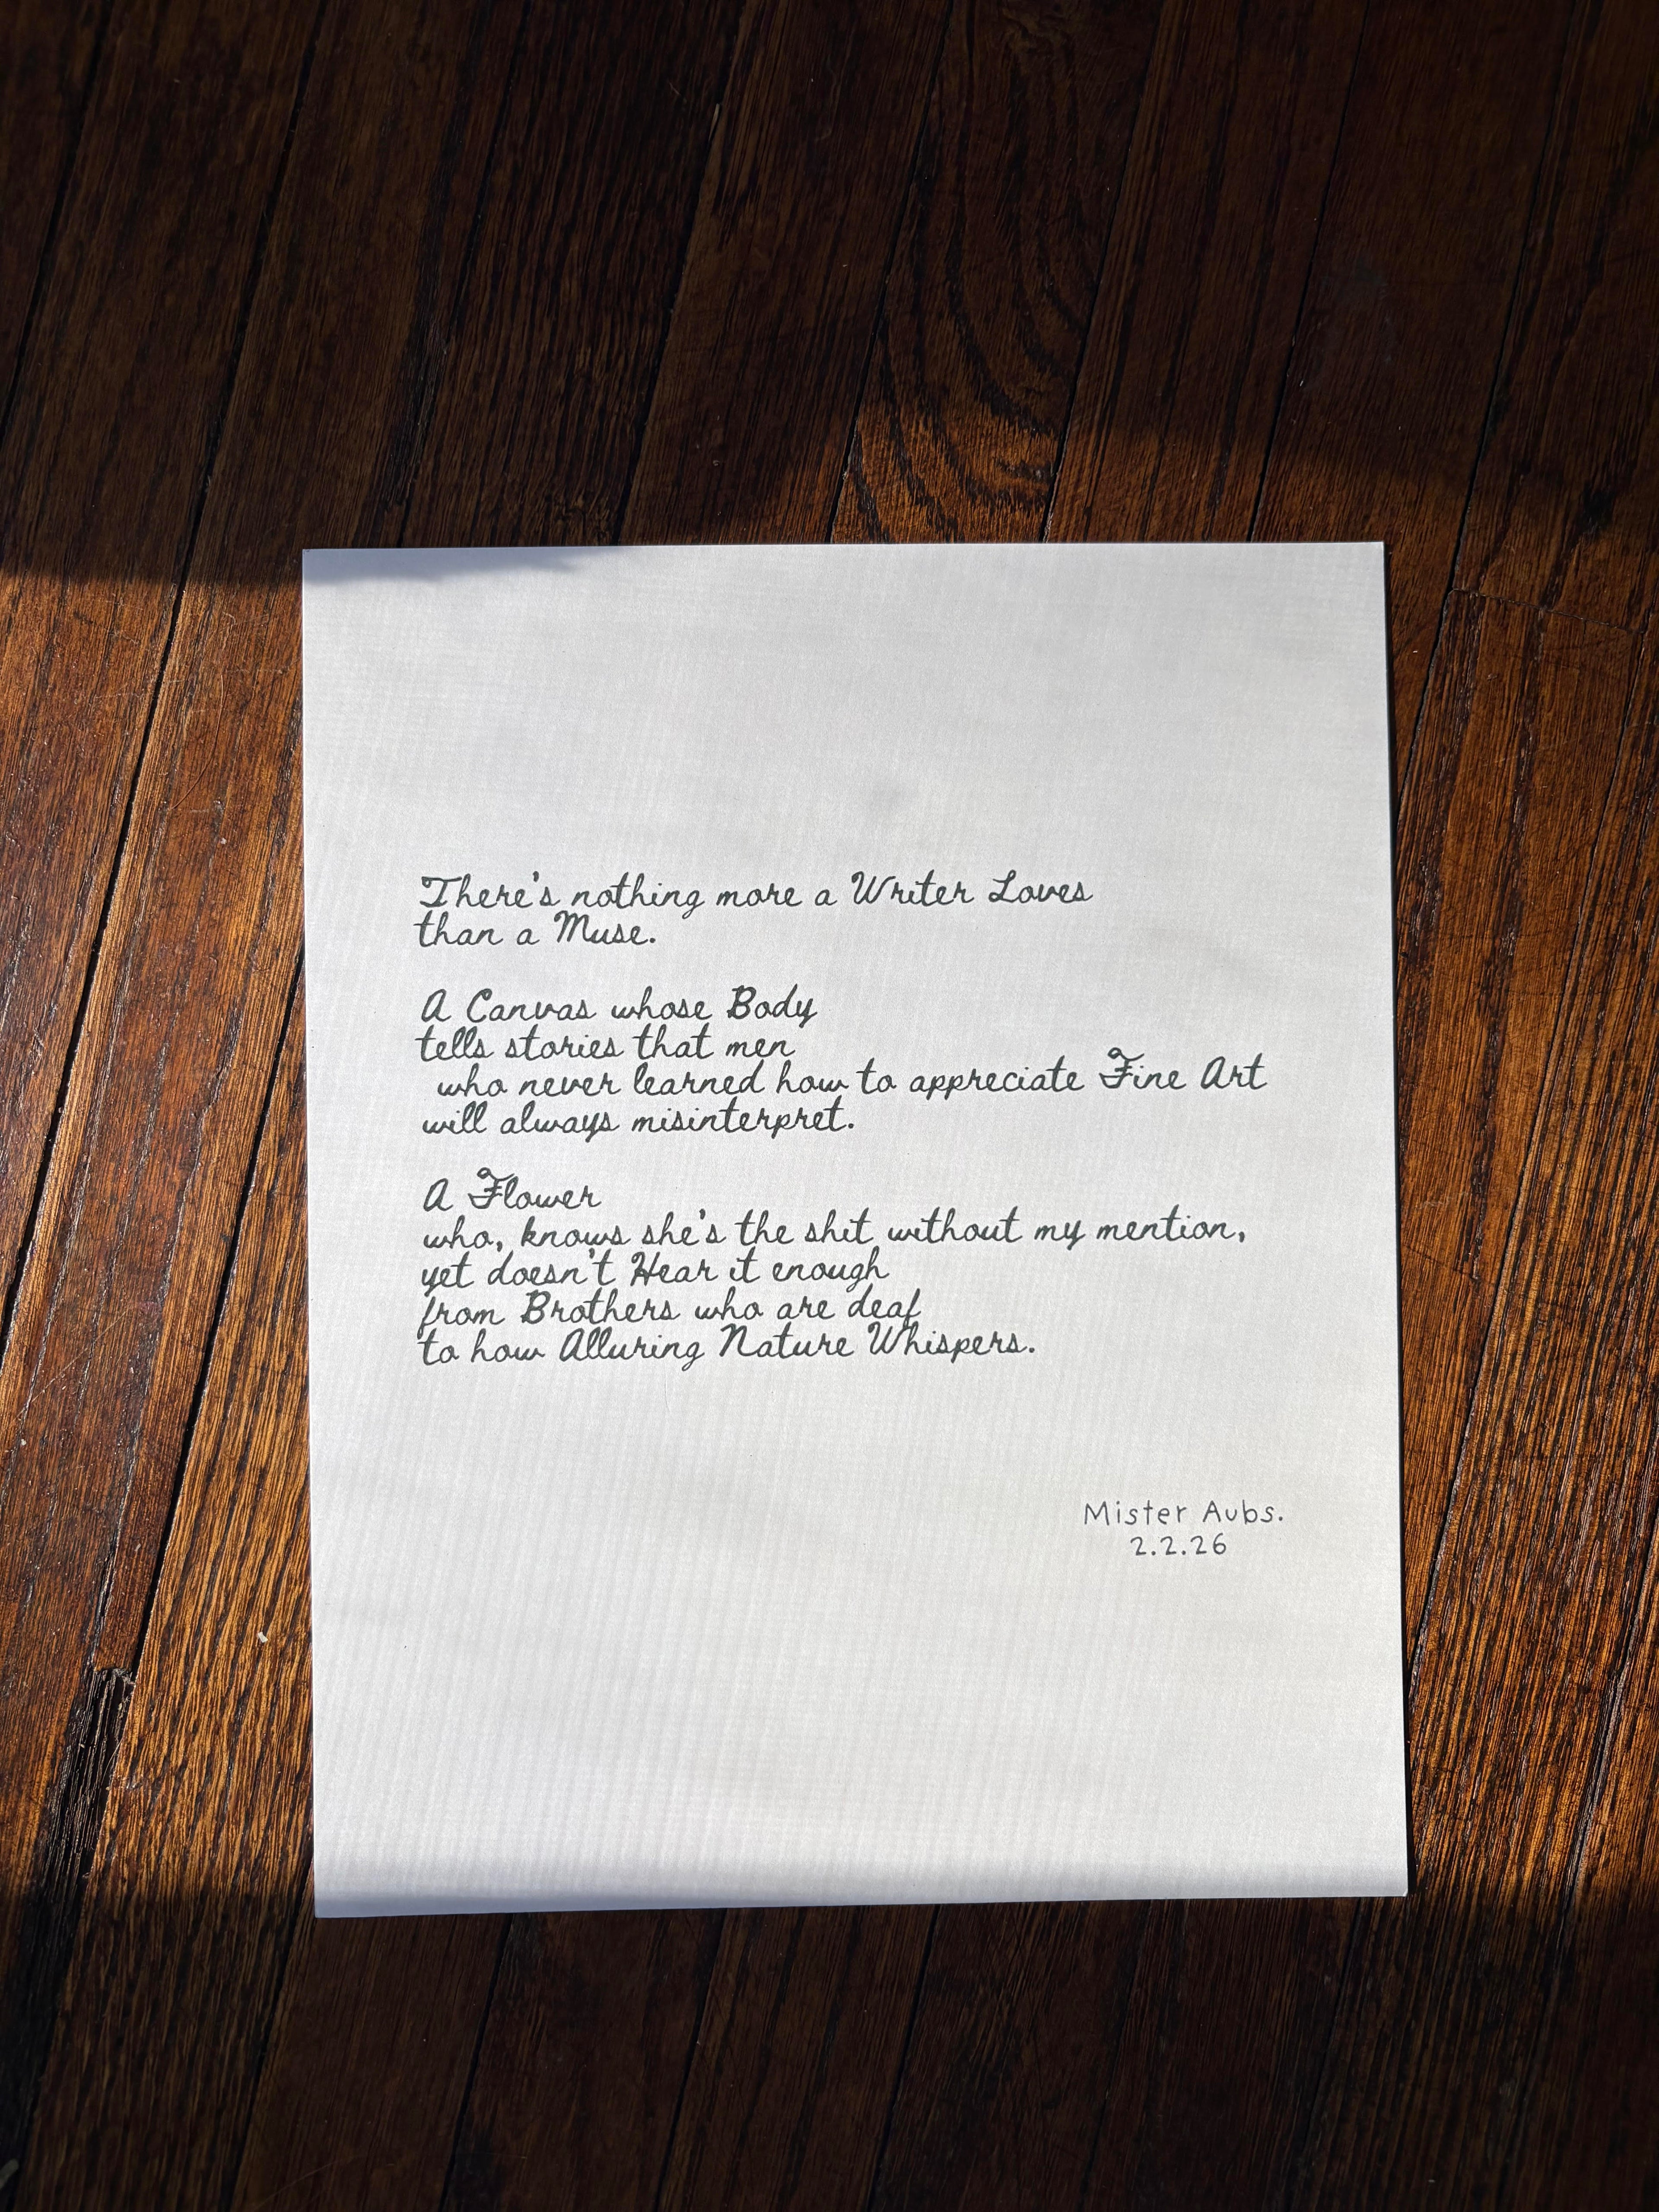 There's nothing more a Writer Loves
than a Muse.
A Canvas whose Body
tells stories that men
who never learned how to appreciate Fine Art
will always misinterpret.
A Flower
who, knows she's the shit without my mention,
yet doesn't Hear it enough
from Brothers who are deaf
to how Alluring Nature Whispers.
Mister Aubs.
2.2.26